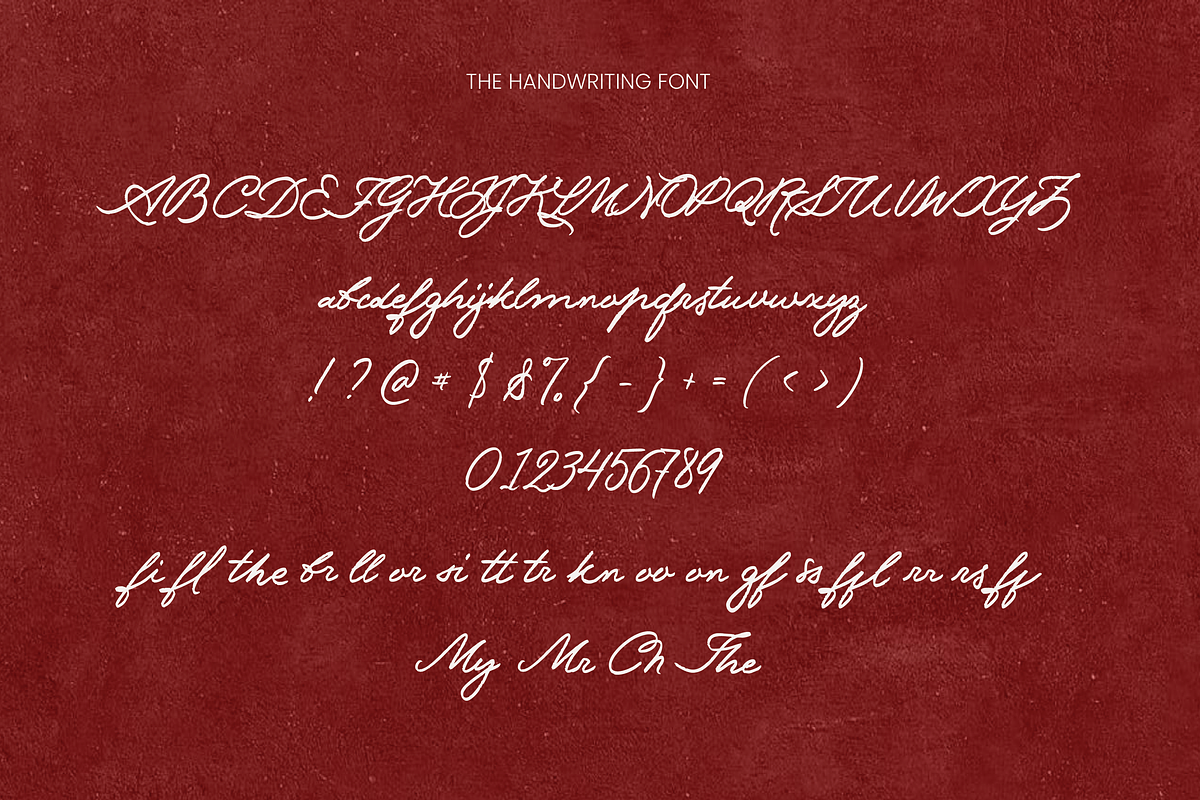 THE HANDWRITING FONT
ABCDEFGHIJKLMNOPQRSTUVWXYZ
abcdefghijklmnopqrstuvwxyz
! ? @ # $ & % { - } + = ( < > )
0123456789
fi fl the br ll or si tt tr kn oo on gf ss ffl rr rs ff
My Mr Ch The